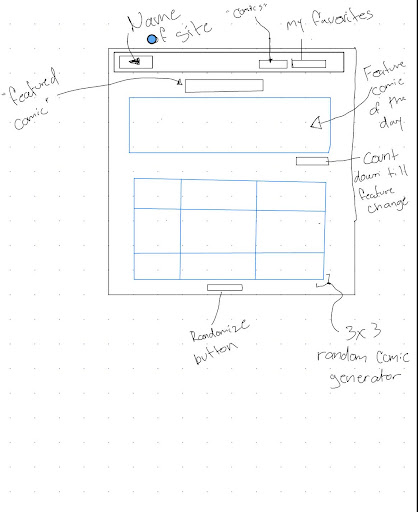 Name
of site
"comics"
my favorites
"featured
comic"
Feature
comic
of the
day
Count
down till
feature
change
Randomize
button
3x3
random comic
generator